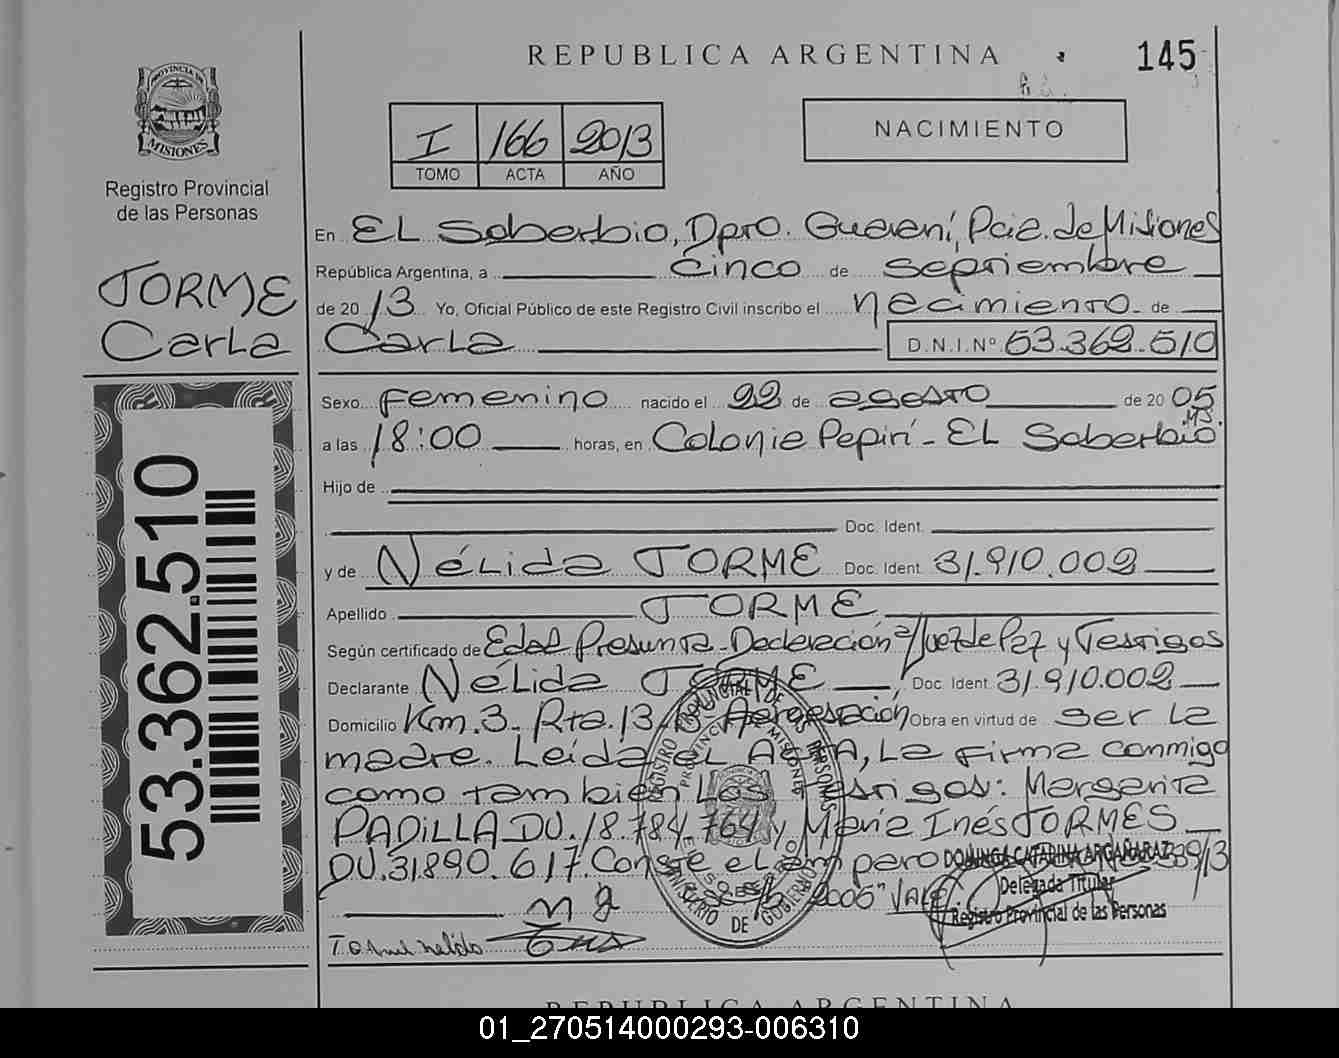 REPUBLICA ARGENTINA
145
PROVINCIA DE
MISIONES
Registro Provincial
de las Personas
I 166 2013
TOMO ACTA AÑO
NACIMIENTO
JORME
Carla
En EL Soberbio, Dpto. Guaraní, Pcia. de Misiones
República Argentina, a cinco de septiembre
de 2013 Yo, Oficial Público de este Registro Civil inscribo el nacimiento de
Carla D.N.I.Nº 53.362.510
53.362.510
Sexo femenino nacido el 22 de agosto de 2005
a las 18:00 horas, en Colonia Pepirí - EL Soberbio Ms.
Hijo de
Doc. Ident.
y de Nélida JORME Doc. Ident. 31.910.002
Apellido JORME
Según certificado de Edad Presunta - Declaración a/Juez de Paz y Testigos
Declarante Nélida JORME, Doc. Ident. 31.910.002
Domicilio Km.3 - Rta.13 - Obra en virtud de ser la
madre. Leída el ACTA, La firma conmigo
como también Los testigos: Margarita
PADILLA DU.18.784.764 y María Inés JORMES
DU.31.890.617. Conste el amparo 39/13
2005" VALE.
DOMINGA CATARINA ARGAÑARAZ
Delegada Titular
Registro Provincial de las Personas
REGISTRO PROVINCIAL DE LAS PERSONAS
PROVINCIA DE MISIONES
MINISTERIO DE GOBIERNO
REPUBLICA ARGENTINA
01_270514000293-006310